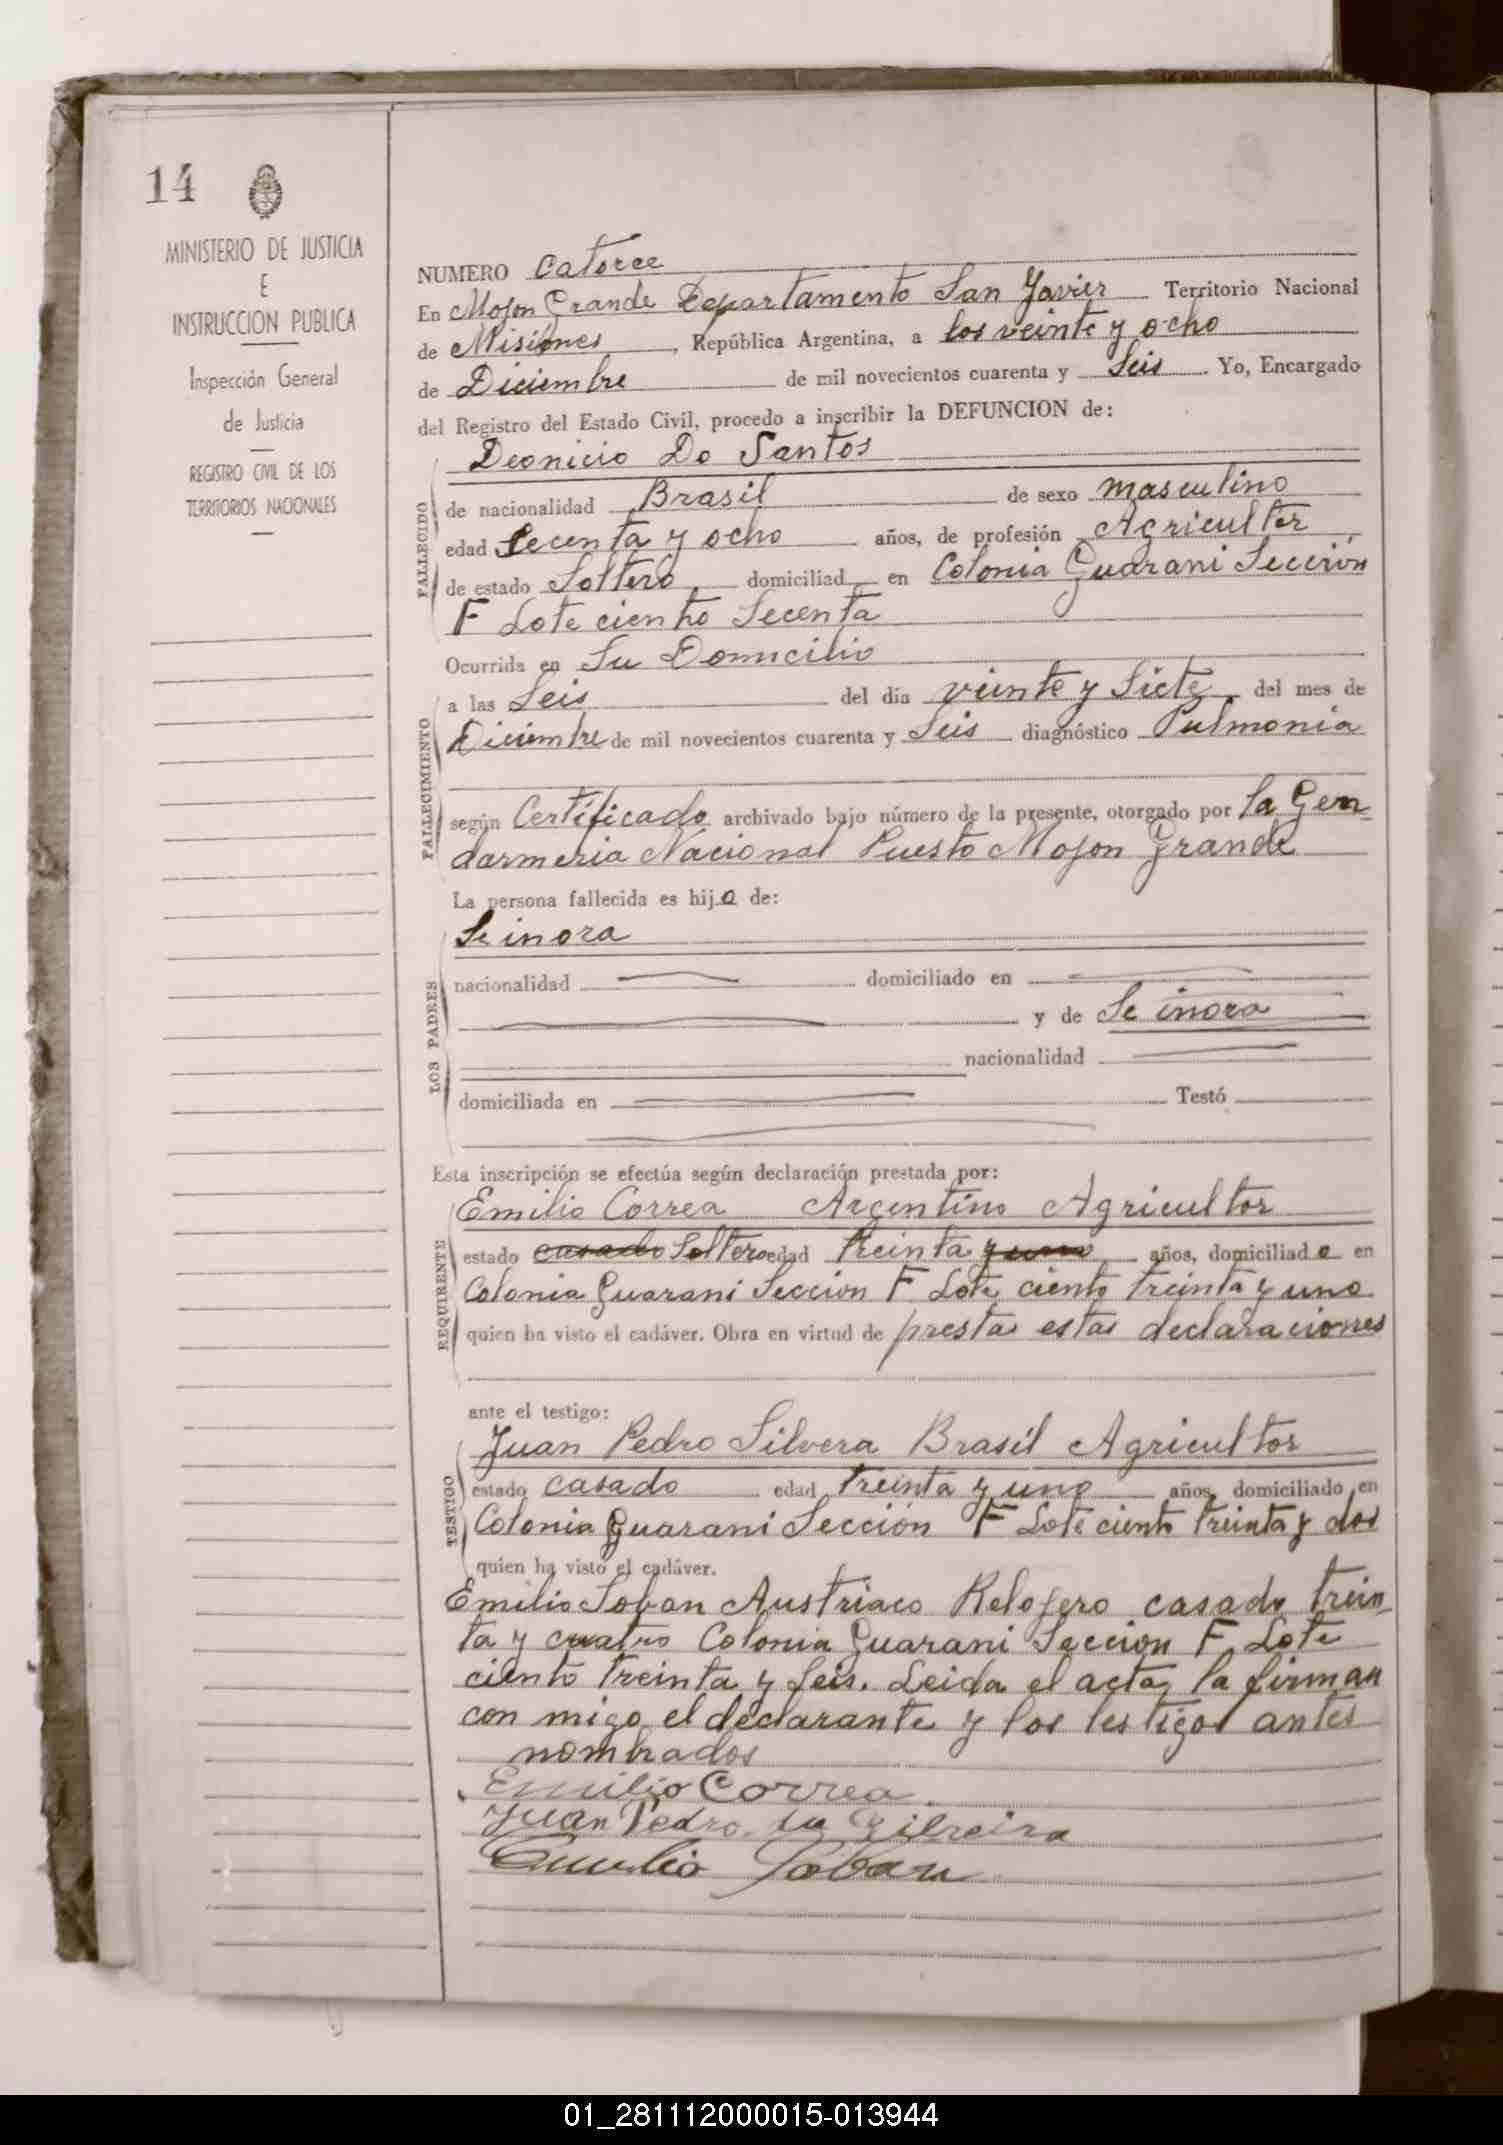 14
MINISTERIO DE JUSTICIA
E
INSTRUCCION PUBLICA
Inspección General
de Justicia
REGISTRO CIVIL DE LOS
TERRITORIOS NACIONALES
NUMERO Catorce
En Mojon Grande Departamento San Javier Territorio Nacional
de Misiones, República Argentina, a los veinte y ocho
de Diciembre de mil novecientos cuarenta y Seis. Yo, Encargado
del Registro del Estado Civil, procedo a inscribir la DEFUNCION de:
Deonicio Do Santos
FALLECIDO
de nacionalidad Brasil de sexo masculino
edad Secenta y ocho años, de profesión Agricultor,
de estado Soltero domiciliad en Colonia Guarani Sección
F Lote ciento Secenta
Ocurrida en Su Domicilio
FALLECIMIENTO
a las Seis del día veinte y Siete del mes de
Diciembre de mil novecientos cuarenta y Seis diagnóstico Pulmonia
según Certificado archivado bajo número de la presente, otorgado por la Gen
darmeria Nacional Puesto Mojon Grande
La persona fallecida es hijo de:
LOS PADRES
Se inora
nacionalidad domiciliado en
y de Se inora
nacionalidad
domiciliada en Testó
Esta inscripción se efectúa según declaración prestada por:
REQUIRENTE
Emilio Correa Argentino Agricultor
estado casado Soltero edad treinta y uno años, domiciliado en
Colonia Guarani Seccion F Lote ciento treinta y uno
quien ha visto el cadáver. Obra en virtud de prestar estas declaraciones
ante el testigo:
TESTIGO
Juan Pedro Silvera Brasil Agricultor
estado casado edad treinta y uno años, domiciliado en
Colonia Guarani Sección F Lote ciento treinta y dos
quien ha visto el cadáver.
Emilio Soban Austriaco Relojero casado trein
ta y cuatro Colonia Guarani Seccion F Lote
ciento treinta y Seis. Leida el acta, la firman
con migo el declarante y los testigos antes
nombrados
Emilio Correa
Juan Pedro da Silveira
Emilio Soban
01_281112000015-013944